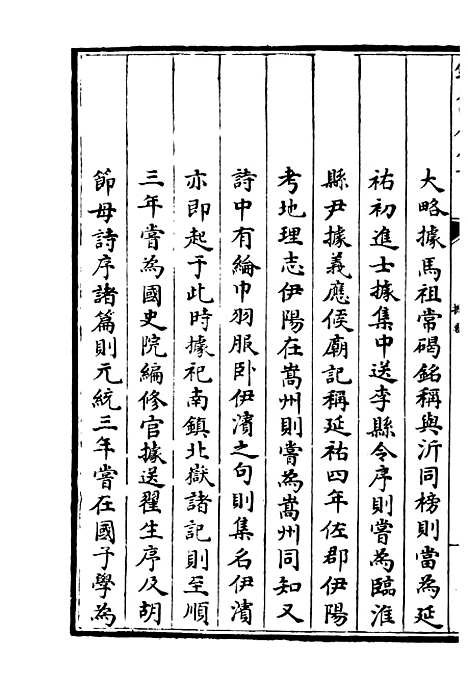 大略據馬祖常碣銘稱與沂同榜則當為延
祐初進士據集中送李縣令序則嘗為臨淮
縣尹據義應侯廟記稱延祐四年佐郡伊陽
考地理志伊陽在嵩州則嘗為嵩州同知又
詩中有綸巾羽服卧伊濱之句則集名伊濱
亦即起于此時據祀南鎮北嶽諸記則至順
三年嘗為國史院編修官據送翟生序及胡
節母詩序諸篇則元統三年嘗在國子學為